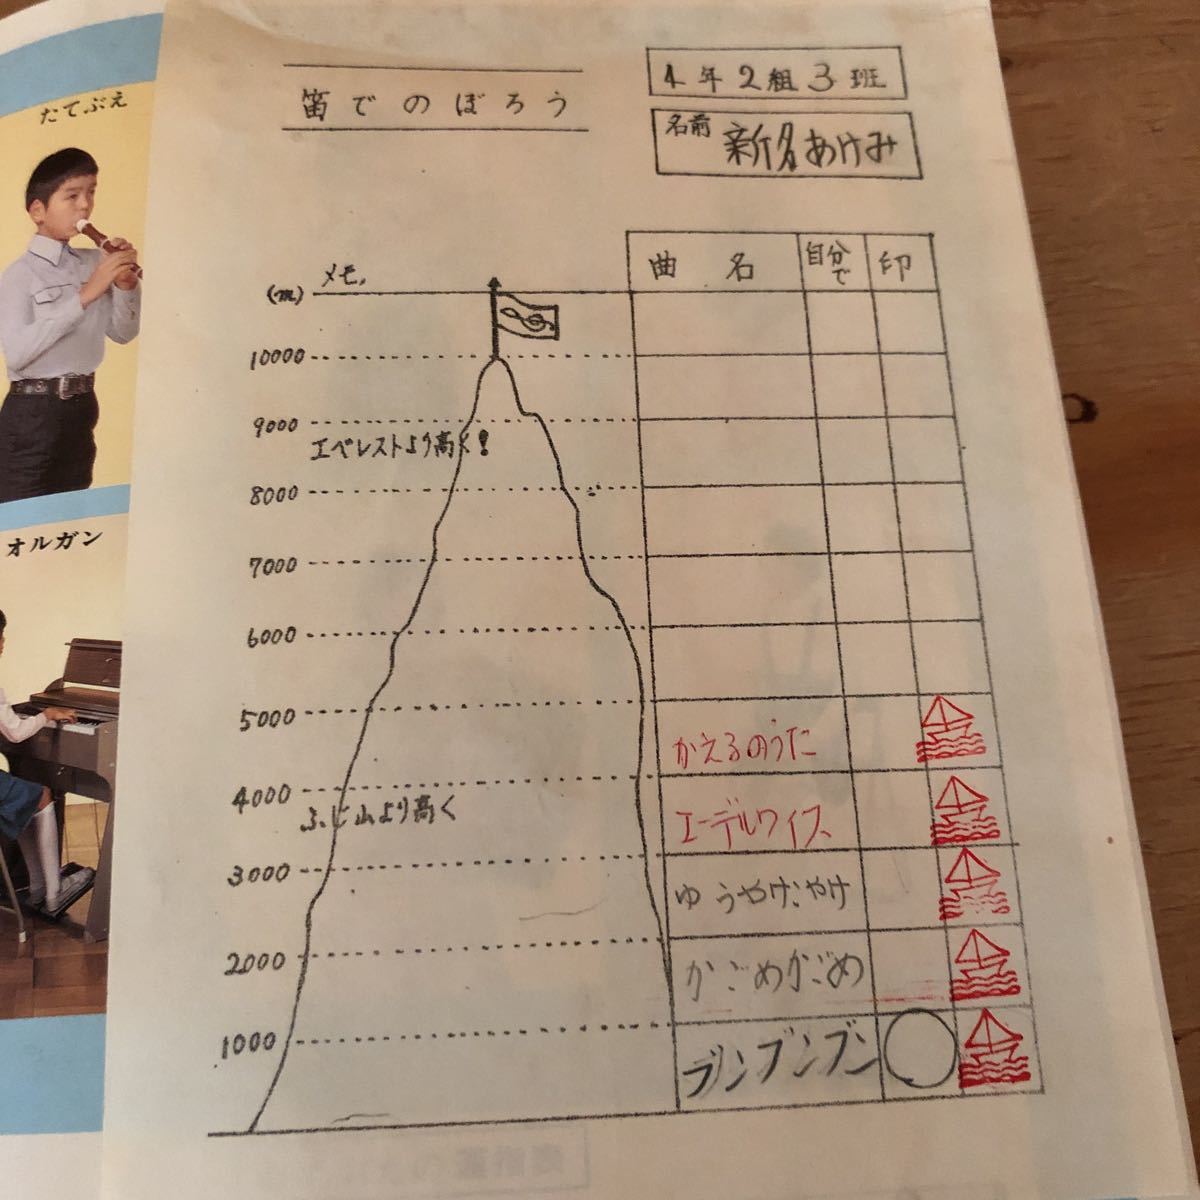 たてぶえ
オルガン
笛でのぼろう
4年2組3班
名前 新名あけみ
曲名 自分で 印
メモ.
(m)
10000
9000
エベレストより高く!
8000
7000
6000
5000
かえるのうた
4000
ふじ山より高く
エーデルワイス
3000
ゆうやけこやけ
2000
かごめかごめ
1000
ブンブンブン